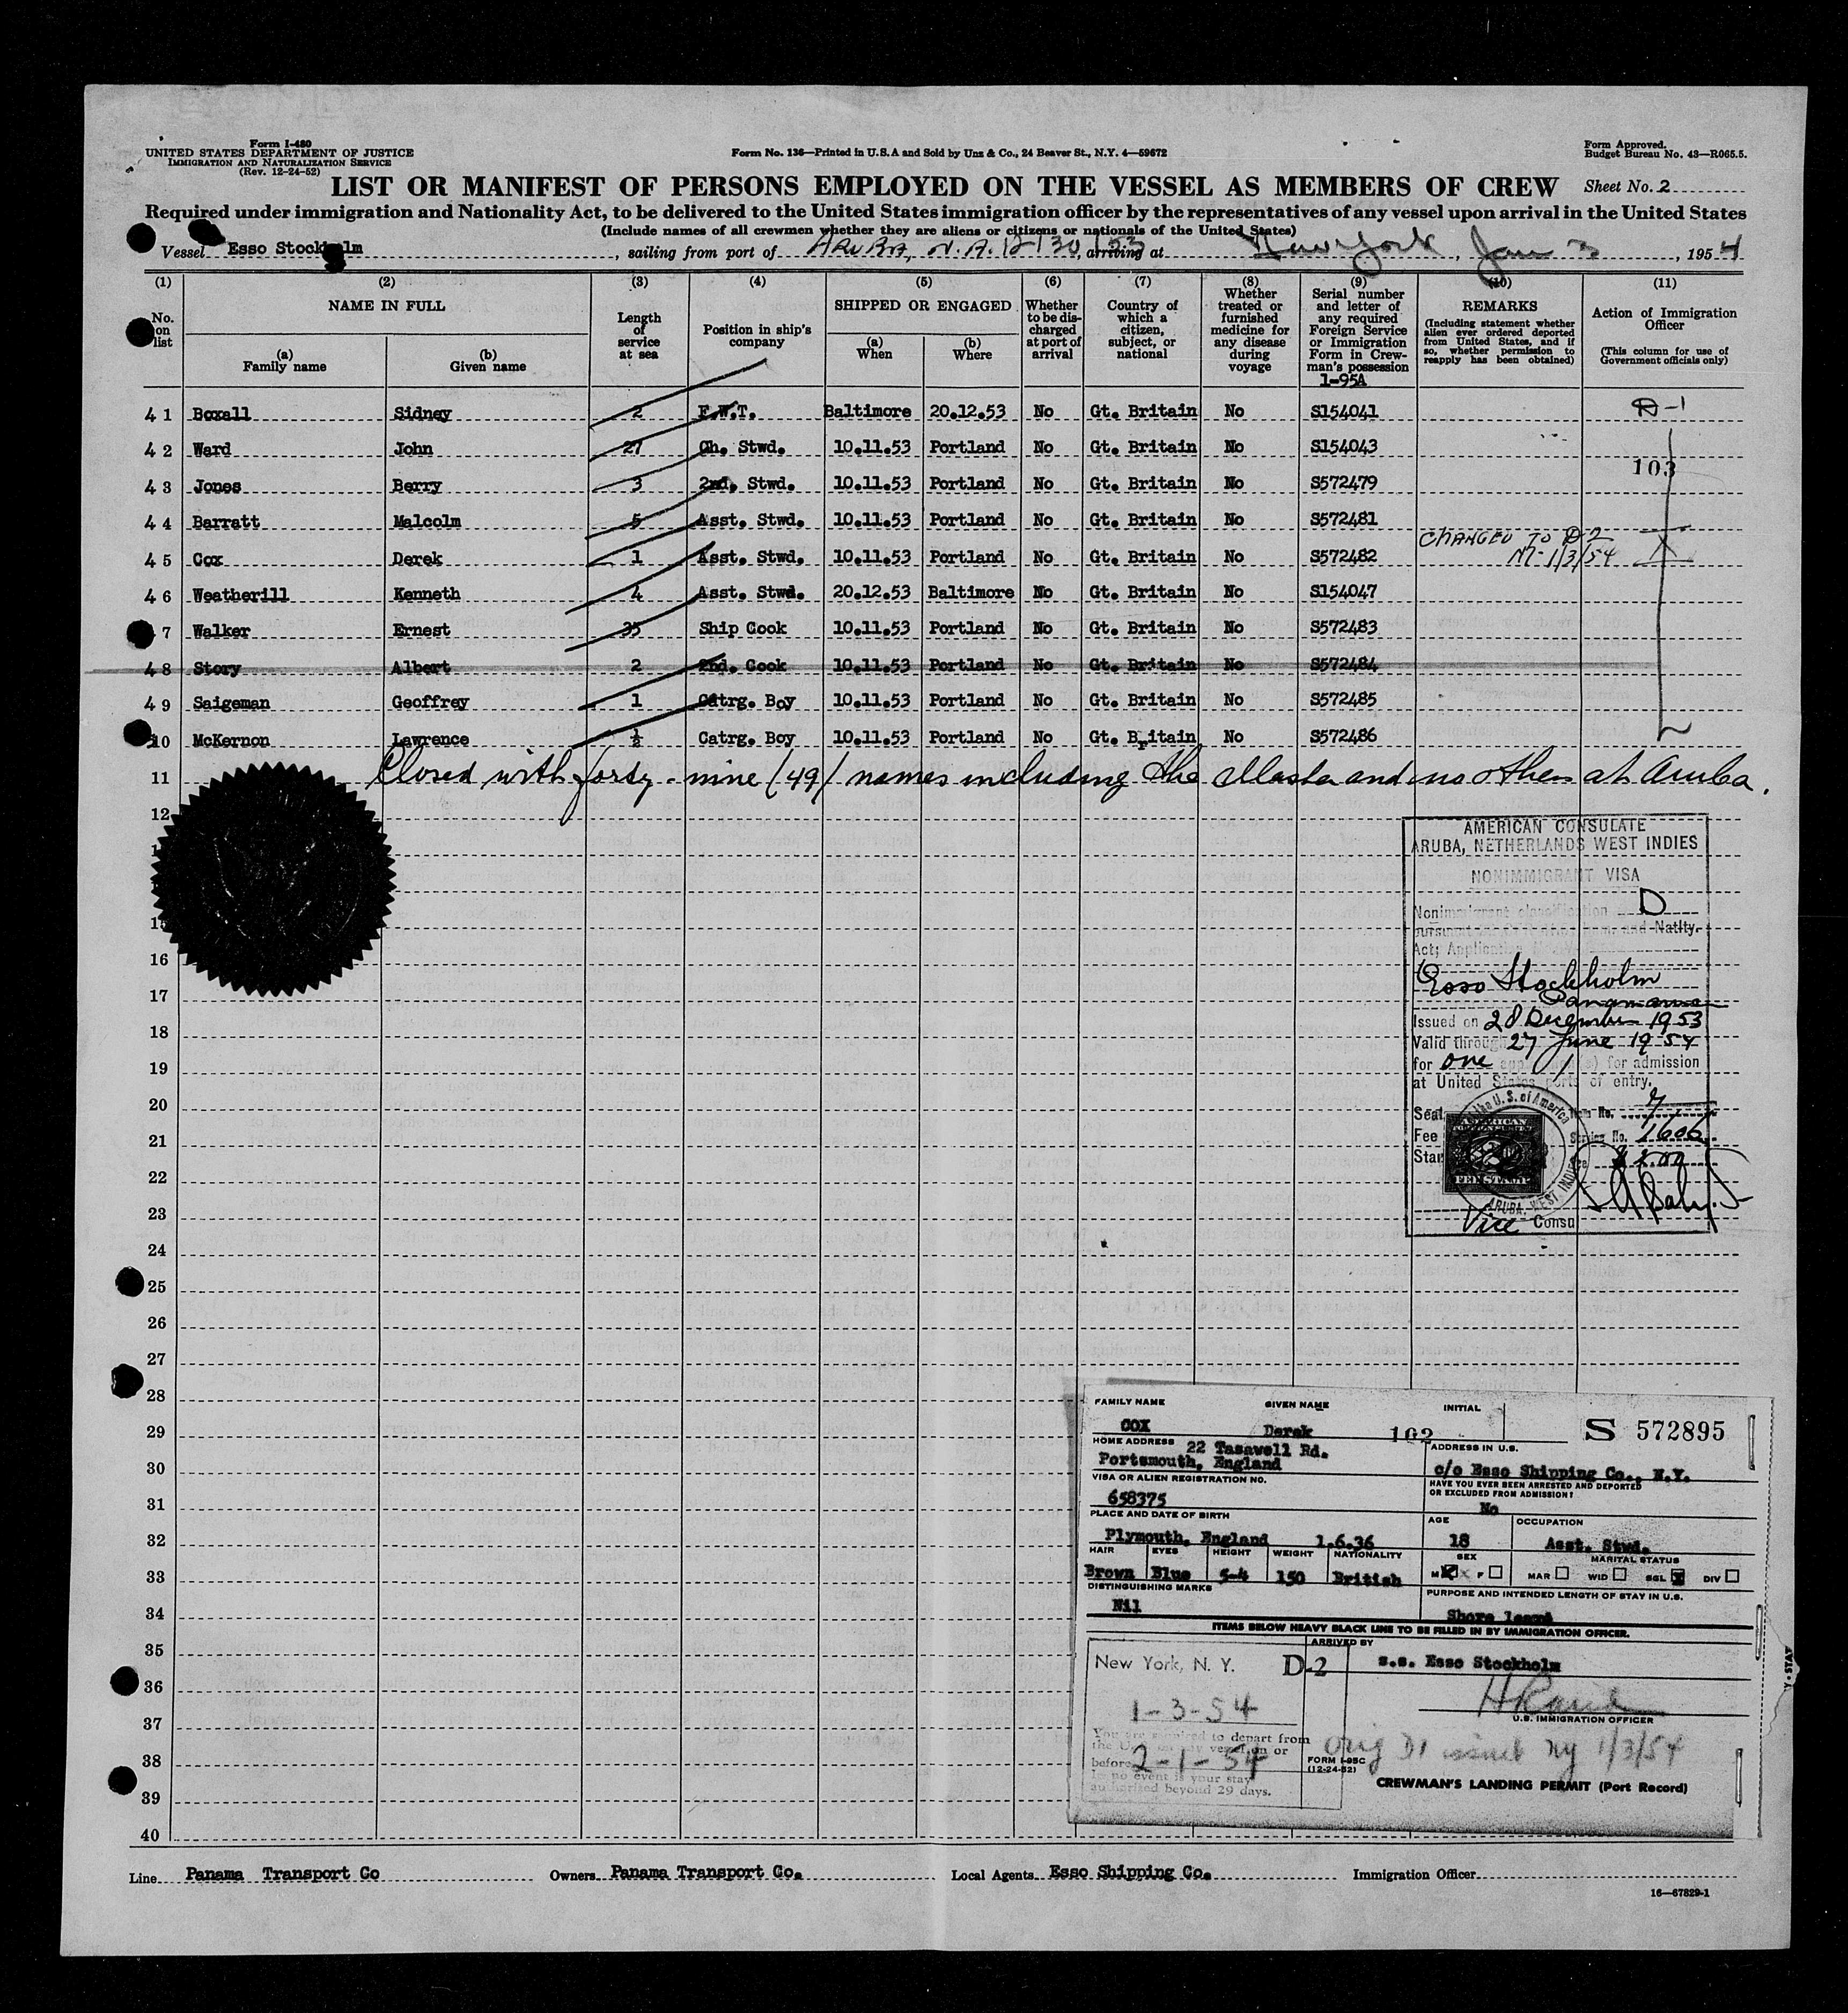 Form I-480
UNITED STATES DEPARTMENT OF JUSTICE
IMMIGRATION AND NATURALIZATION SERVICE
(Rev. 12-24-52)
Form No. 136—Printed in U.S.A and Sold by Unz & Co., 24 Beaver St., N.Y. 4—59672
Form Approved.
Budget Bureau No. 43—R065.5.
LIST OR MANIFEST OF PERSONS EMPLOYED ON THE VESSEL AS MEMBERS OF CREW
Sheet No. 2
Required under immigration and Nationality Act, to be delivered to the United States immigration officer by the representatives of any vessel upon arrival in the United States
(Include names of all crewmen whether they are aliens or citizens or nationals of the United States)
Vessel Esso Stockholm, sailing from port of ARUBA, N.A. 12/30/53 arriving at New York, Jan 3, 1954
(1) (2) (3) (4) (5) (6) (7) (8) (9) (10) (11)
No. on list
NAME IN FULL
(a) Family name
(b) Given name
Length of service at sea
Position in ship's company
SHIPPED OR ENGAGED
(a) When
(b) Where
Whether to be discharged at port of arrival
Country of which a citizen, subject, or national
Whether treated or furnished medicine for any disease during voyage
Serial number and letter of any required Foreign Service or Immigration Form in Crewman's possession
1-95A
REMARKS
(Including statement whether alien ever ordered deported from United States, and if so, whether permission to reapply has been obtained)
Action of Immigration Officer
(This column for use of Government officials only)
41 Boxall Sidney 2 F.W.T. Baltimore 20.12.53 No Gt. Britain No S154041 D-1
42 Ward John 27 Ch. Stwd. 10.11.53 Portland No Gt. Britain No S154043
103
43 Jones Berry 3 2nd. Stwd. 10.11.53 Portland No Gt. Britain No S572479
44 Barratt Malcolm 5 Asst. Stwd. 10.11.53 Portland No Gt. Britain No S572481
CHANGED TO D2
45 Cox Derek 1 Asst. Stwd. 10.11.53 Portland No Gt. Britain No S572482 NY-1/3/54
46 Weatherill Kenneth 4 Asst. Stwd. 20.12.53 Baltimore No Gt. Britain No S154047
7 Walker Ernest 35 Ship Cook 10.11.53 Portland No Gt. Britain No S572483
48 Story Albert 2 2nd. Cook 10.11.53 Portland No Gt. Britain No S572484
49 Saigeman Geoffrey 1 Catrg. Boy 10.11.53 Portland No Gt. Britain No S572485
10 McKernon Lawrence ½ Catrg. Boy 10.11.53 Portland No Gt. Britain No S572486
11 Closed with forty-nine (49) names including the Master and no others at Aruba.
12
15
16
17
18
19
20
21
22
23
24
25
26
27
28
29
30
31
32
33
34
35
36
37
38
39
40
AMERICAN CONSULATE
ARUBA, NETHERLANDS WEST INDIES
NONIMMIGRANT VISA
Nonimmigrant classification D
and Natlty.
Act; Application
Esso Stockholm
Panamanian
Issued on 28 December 1953
Valid through 27 June 1954
for one application(s) for admission
at United States ports of entry.
Seal
Fee
Stamp
the U. S. of America
AMERICAN
FEE STAMP
ARUBA, WEST INDIES
Item No. 7
Service No. 1606
Vice Consul
FAMILY NAME GIVEN NAME INITIAL
COX Derek 102
S 572895
HOME ADDRESS 22 Tasawell Rd.
Portsmouth, England
ADDRESS IN U.S.
c/o Esso Shipping Co., N.Y.
VISA OR ALIEN REGISTRATION NO.
658375
HAVE YOU EVER BEEN ARRESTED AND DEPORTED
OR EXCLUDED FROM ADMISSION?
No
PLACE AND DATE OF BIRTH
Plymouth, England 1.6.36
AGE 18
OCCUPATION Asst. Stwd.
HAIR EYES HEIGHT WEIGHT NATIONALITY
Brown Blue 5-4 150 British
SEX
M X F
MARITAL STATUS
MAR WID SGL X DIV
DISTINGUISHING MARKS
Nil
PURPOSE AND INTENDED LENGTH OF STAY IN U.S.
Shore leave
ITEMS BELOW HEAVY BLACK LINE TO BE FILLED IN BY IMMIGRATION OFFICER.
ARRIVED BY
New York, N. Y. D-2
s.s. Esso Stockholm
1-3-54
U.S. IMMIGRATION OFFICER
You are required to depart from
the U.S. on any vessel on or
before 2-1-54
In no event is your stay
authorized beyond 29 days.
Orig D1 issued NY 1/3/54
FORM I-95C
(12-24-52)
CREWMAN'S LANDING PERMIT (Port Record)
Line Panama Transport Co
Owners Panama Transport Co.
Local Agents Esso Shipping Co.
Immigration Officer
16—67829-1